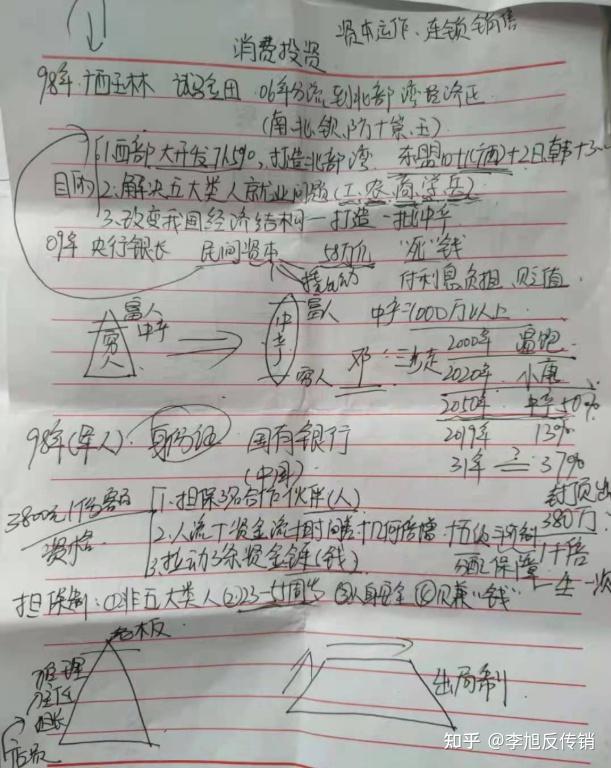 资本运作、连锁销售
消费投资
98年 广西玉林 试验田 06年分流到北部湾经济区
(南、北、钦、防+崇、玉)
1.西部大开发 打造北部湾 东盟10+1(广西)+2日、韩+3
目的 2.解决五大类人就业问题(工、农、商、学、兵)
3.改变我国经济结构—打造一批中产
09年 央行银长 民间资本 58万亿 "死"钱
付利息负担、贬值
富人 富人 中产=1000万以上
中产 中产
穷人 穷人 邓 三步走
2000年 温饱
2020年 小康
2050年 中产50%
2019年 13%
31年 ? = 37%
98年(军人) 身份证 国有银行
(中国)
3800元1份 资格
1.担保3名合作伙伴(人)
2.人流+资金流+时间差+几何倍增
3.拉动3条资金链(钱)
封顶 380万
分配保障 1千倍
一生一次
担保制:①非五大类人②23-55周岁 ③人身安全 ④ "钱"
老板
推理
主任
组长
出局制
知乎 @李旭反传销